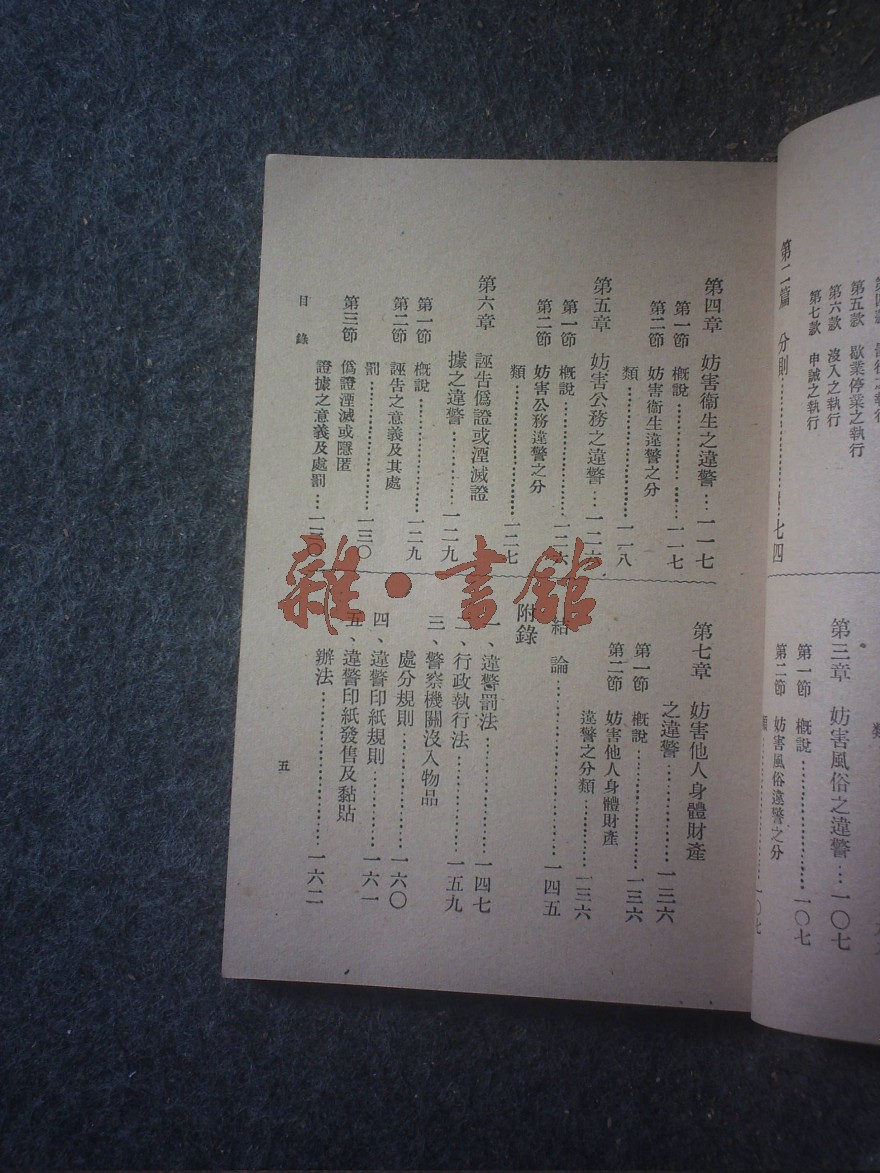 第五款 歇業停業之執行
第六款 沒入之執行
第七款 申誡之執行
第二篇 分則……七四
第三章 妨害風俗之違警…一〇七
第一節 概說……一〇七
第二節 妨害風俗違警之分
類……一〇七
第四章 妨害衞生之違警…一一七
第一節 概說……一一七
第二節 妨害衞生違警之分
類……一一八
第五章 妨害公務之違警…一二六
第一節 概說……一二六
第二節 妨害公務違警之分
類……一二七
第六章 誣告僞證或湮滅證
據之違警……一二九
第一節 概說……一二九
第二節 誣告之意義及其處
罰……一三〇
第三節 僞證湮滅或隱匿
證據之意義及處罰…一三〇
目錄
第七章 妨害他人身體財產
之違警……一三六
第一節 概說……一三六
第二節 妨害他人身體財產
違警之分類……一三六
結論……一四五
附錄
一、違警罰法……一四七
二、行政執行法……一五九
三、警察機關沒入物品
處分規則……一六〇
四、違警印紙規則……一六一
五、違警印紙發售及黏貼
辦法……一六二
五
雜·書館